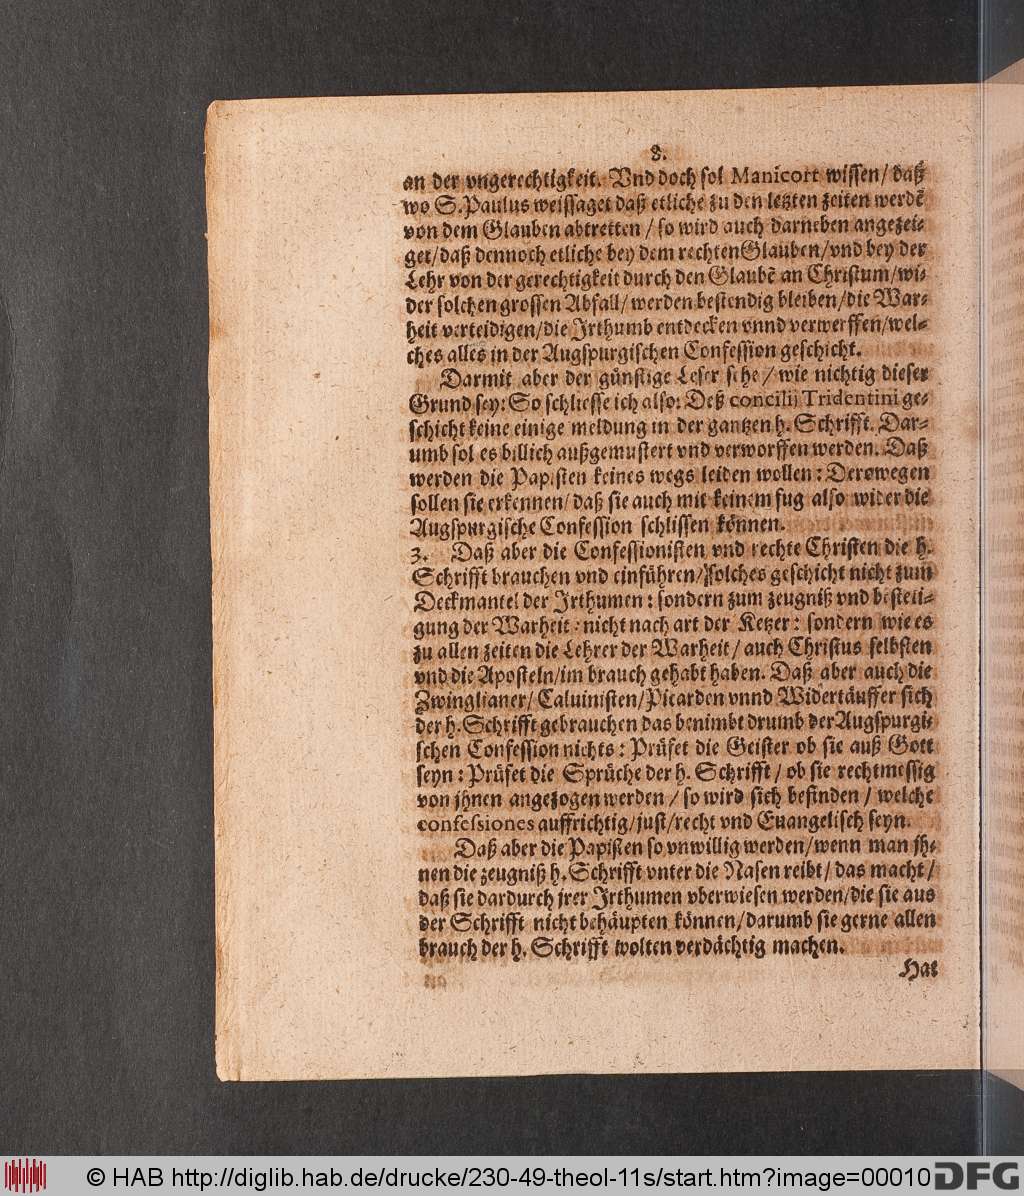 8.
an der vngerechtigkeit. Vnd doch sol Manicort wissen/ daß
wo S. Paulus weissaget daß etliche zu den letzten zeiten werdē
von dem Glauben abtretten / so wird auch darneben angezei-
get/ daß dennoch etliche bey dem rechten Glauben/ vnd bey der
Lehr von der gerechtigkeit durch den Glaubē an Christum/ wi-
der solchen grossen Abfall/ werden bestendig bleiben/ die War-
heit verteidigen/ die Irthumb entdecken vnnd verwerffen/ wel-
ches alles in der Augspurgischen Confession geschicht.
Darmit aber der günstige Leser sehe / wie nichtig dieser
Grund sey: So schliesse ich also: Deß concilij Tridentini ge-
schicht keine einige meldung in der gantzen h. Schrifft. Dar-
umb sol es billich außgemustert vnd verworffen werden. Daß
werden die Papisten keines wegs leiden wollen: Derowegen
sollen sie erkennen/ daß sie auch mit keinem fug also wider die
Augspurgische Confession schlissen können.
3. Daß aber die Confessionisten vnd rechte Christen die h.
Schrifft brauchen vnd einführen/ solches geschicht nicht zum
Deckmantel der Irthumen: sondern zum zeugniß vnd besteti-
gung der Warheit: nicht nach art der Ketzer: sondern wie es
zu allen zeiten die Lehrer der Warheit/ auch Christus selbsten
vnd die Aposteln/ im brauch gehabt haben. Daß aber auch die
Zwinglianer/ Caluinisten/ Picarden vnnd Widertäuffer sich
der h. Schrifft gebrauchen das benimbt drumb der Augspurgi-
schen Confession nichts: Prüfet die Geister ob sie auß Gott
seyn: Prüfet die Sprüche der h. Schrifft / ob sie rechtmessig
von jhnen angezogen werden / so wird sich befinden / welche
confessiones auffrichtig/ just/ recht vnd Euangelisch seyn.
Daß aber die Papisten so vnwillig werden/ wenn man jh-
nen die zeugniß h. Schrifft vnter die Nasen reibt/ das macht/
daß sie dardurch jrer Irthumen vberwiesen werden/ die sie aus
der Schrifft nicht behäupten können/ darumb sie gerne allen
brauch der h. Schrifft wolten verdächtig machen.
Hat
© HAB http://diglib.hab.de/drucke/230-49-theol-11s/start.htm?image=00010
DFG